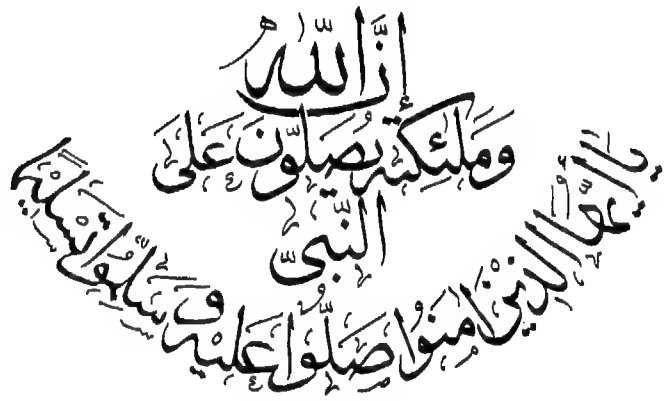 إنَّ اللّٰه
وَمَلٰئِكَتَه يُصَلّونَ عَلَى
النَّبيّ
يا ايّها الذين اٰمنوُا صَلّوُا عَليْه وَ سَلِّموُا تَسْليْما